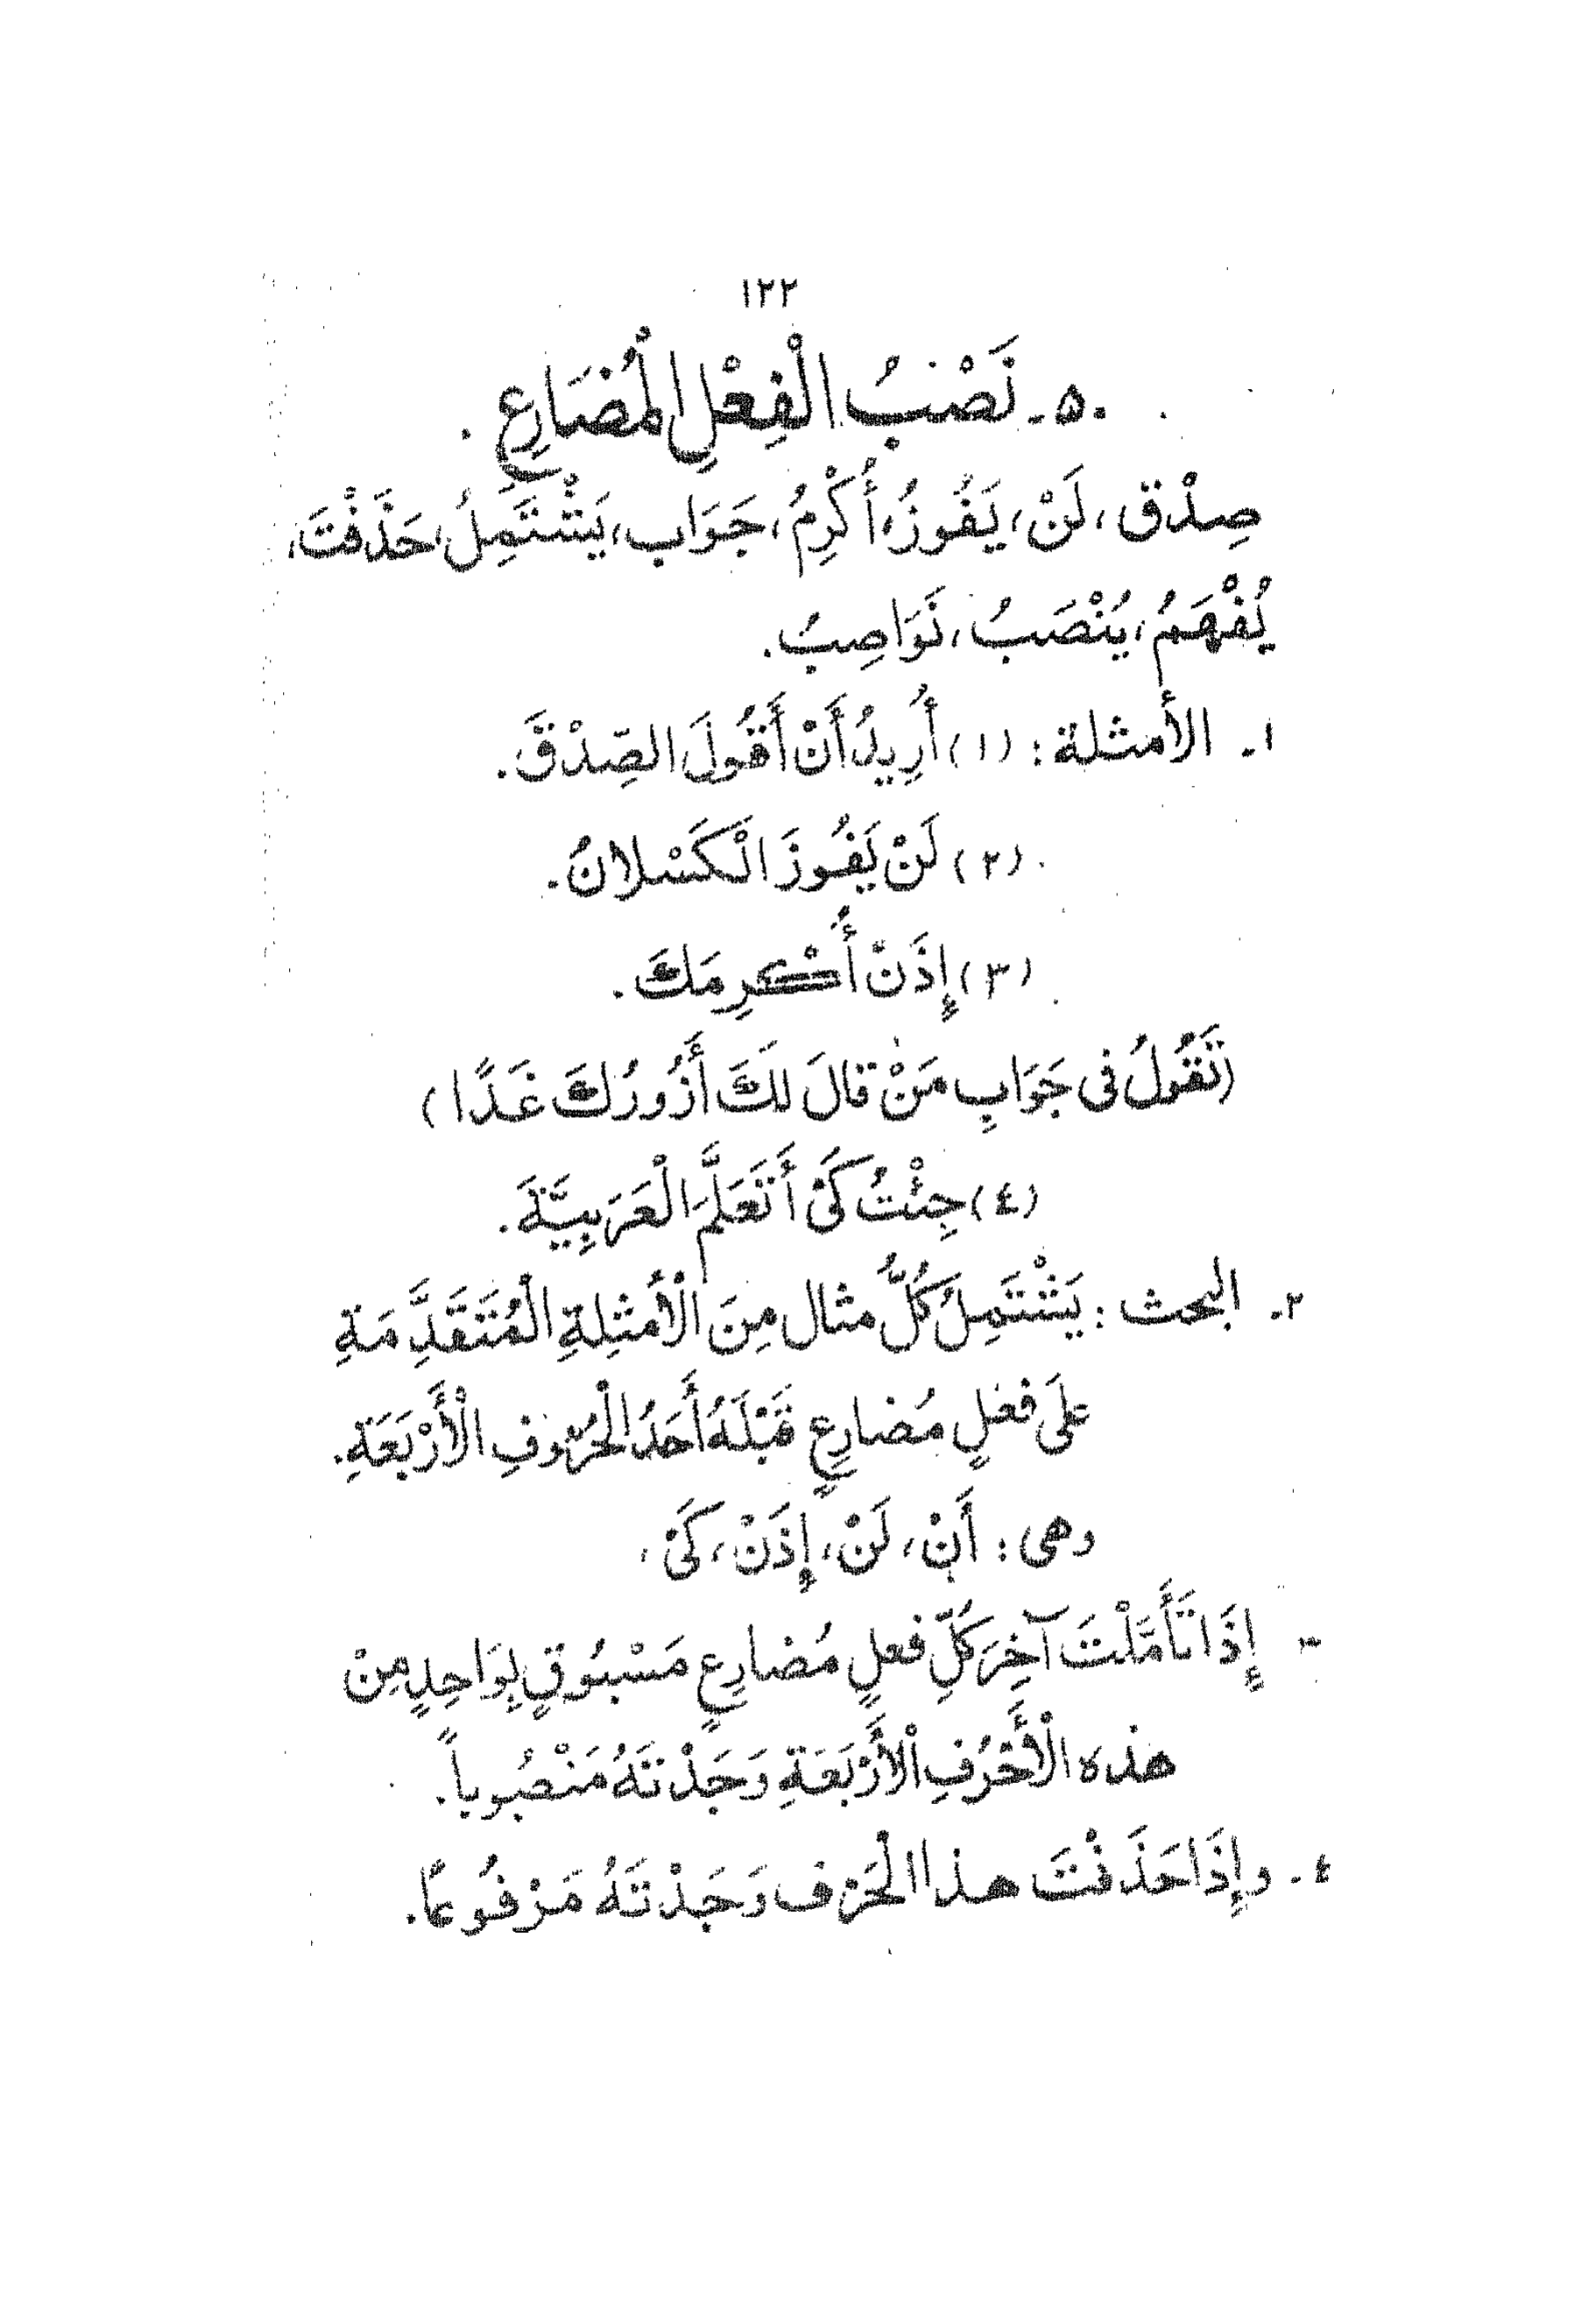 ١٢٢
٥٠- نَصْبُ الْفِعْلِ الْمُضَارِعِ .
صِدْق ، لَنْ ، يَفُوزُ ، أُكْرِمُ ، جَوَاب ، يَشْتَمِلُ ، حَذَفْتَ ،
يُفْهَمُ ، يُنْصَبُ ، نَوَاصِبُ .
١- الأمثلة : (١) أُرِيدُ أَنْ أَقُولَ الصِّدْقَ .
(٢) لَنْ يَفُوزَ الْكَسْلانُ .
(٣) إِذَنْ أُكْرِمَكَ .
(تَقُولُ فى جَوَابِ مَنْ قالَ لَكَ أَزُورُكَ غَدًا)
(٤) جِئْتُ كَىْ أَتَعَلَّمَ الْعَرَبِيَّةَ .
٢- البحث : يَشْتَمِلُ كُلُّ مثال مِنَ الْأَمْثِلةِ الْمُتَقَدِّمَةِ
علَى فعْلٍ مُضارِعٍ قَبْلَهُ أَحَدُ الْحُرُوفِ الْأَرْبَعَةِ .
وهى : أَنْ ، لَنْ ، إِذَنْ ، كَىْ ،
٣ إِذَا تَأَمَّلْتَ آخِرَ كُلِّ فعلٍ مُضارِعٍ مَسْبُوقٍ بِوَاحِدٍ مِنْ
هذه الْأَحْرُفِ الْأَرْبَعَةِ وَجَدْتَهُ مَنْصُوباً .
٤- وإِذَا حَذَفْتَ هذا الْحَرْف وَجَدْتَهُ مَرْفُوعًا .